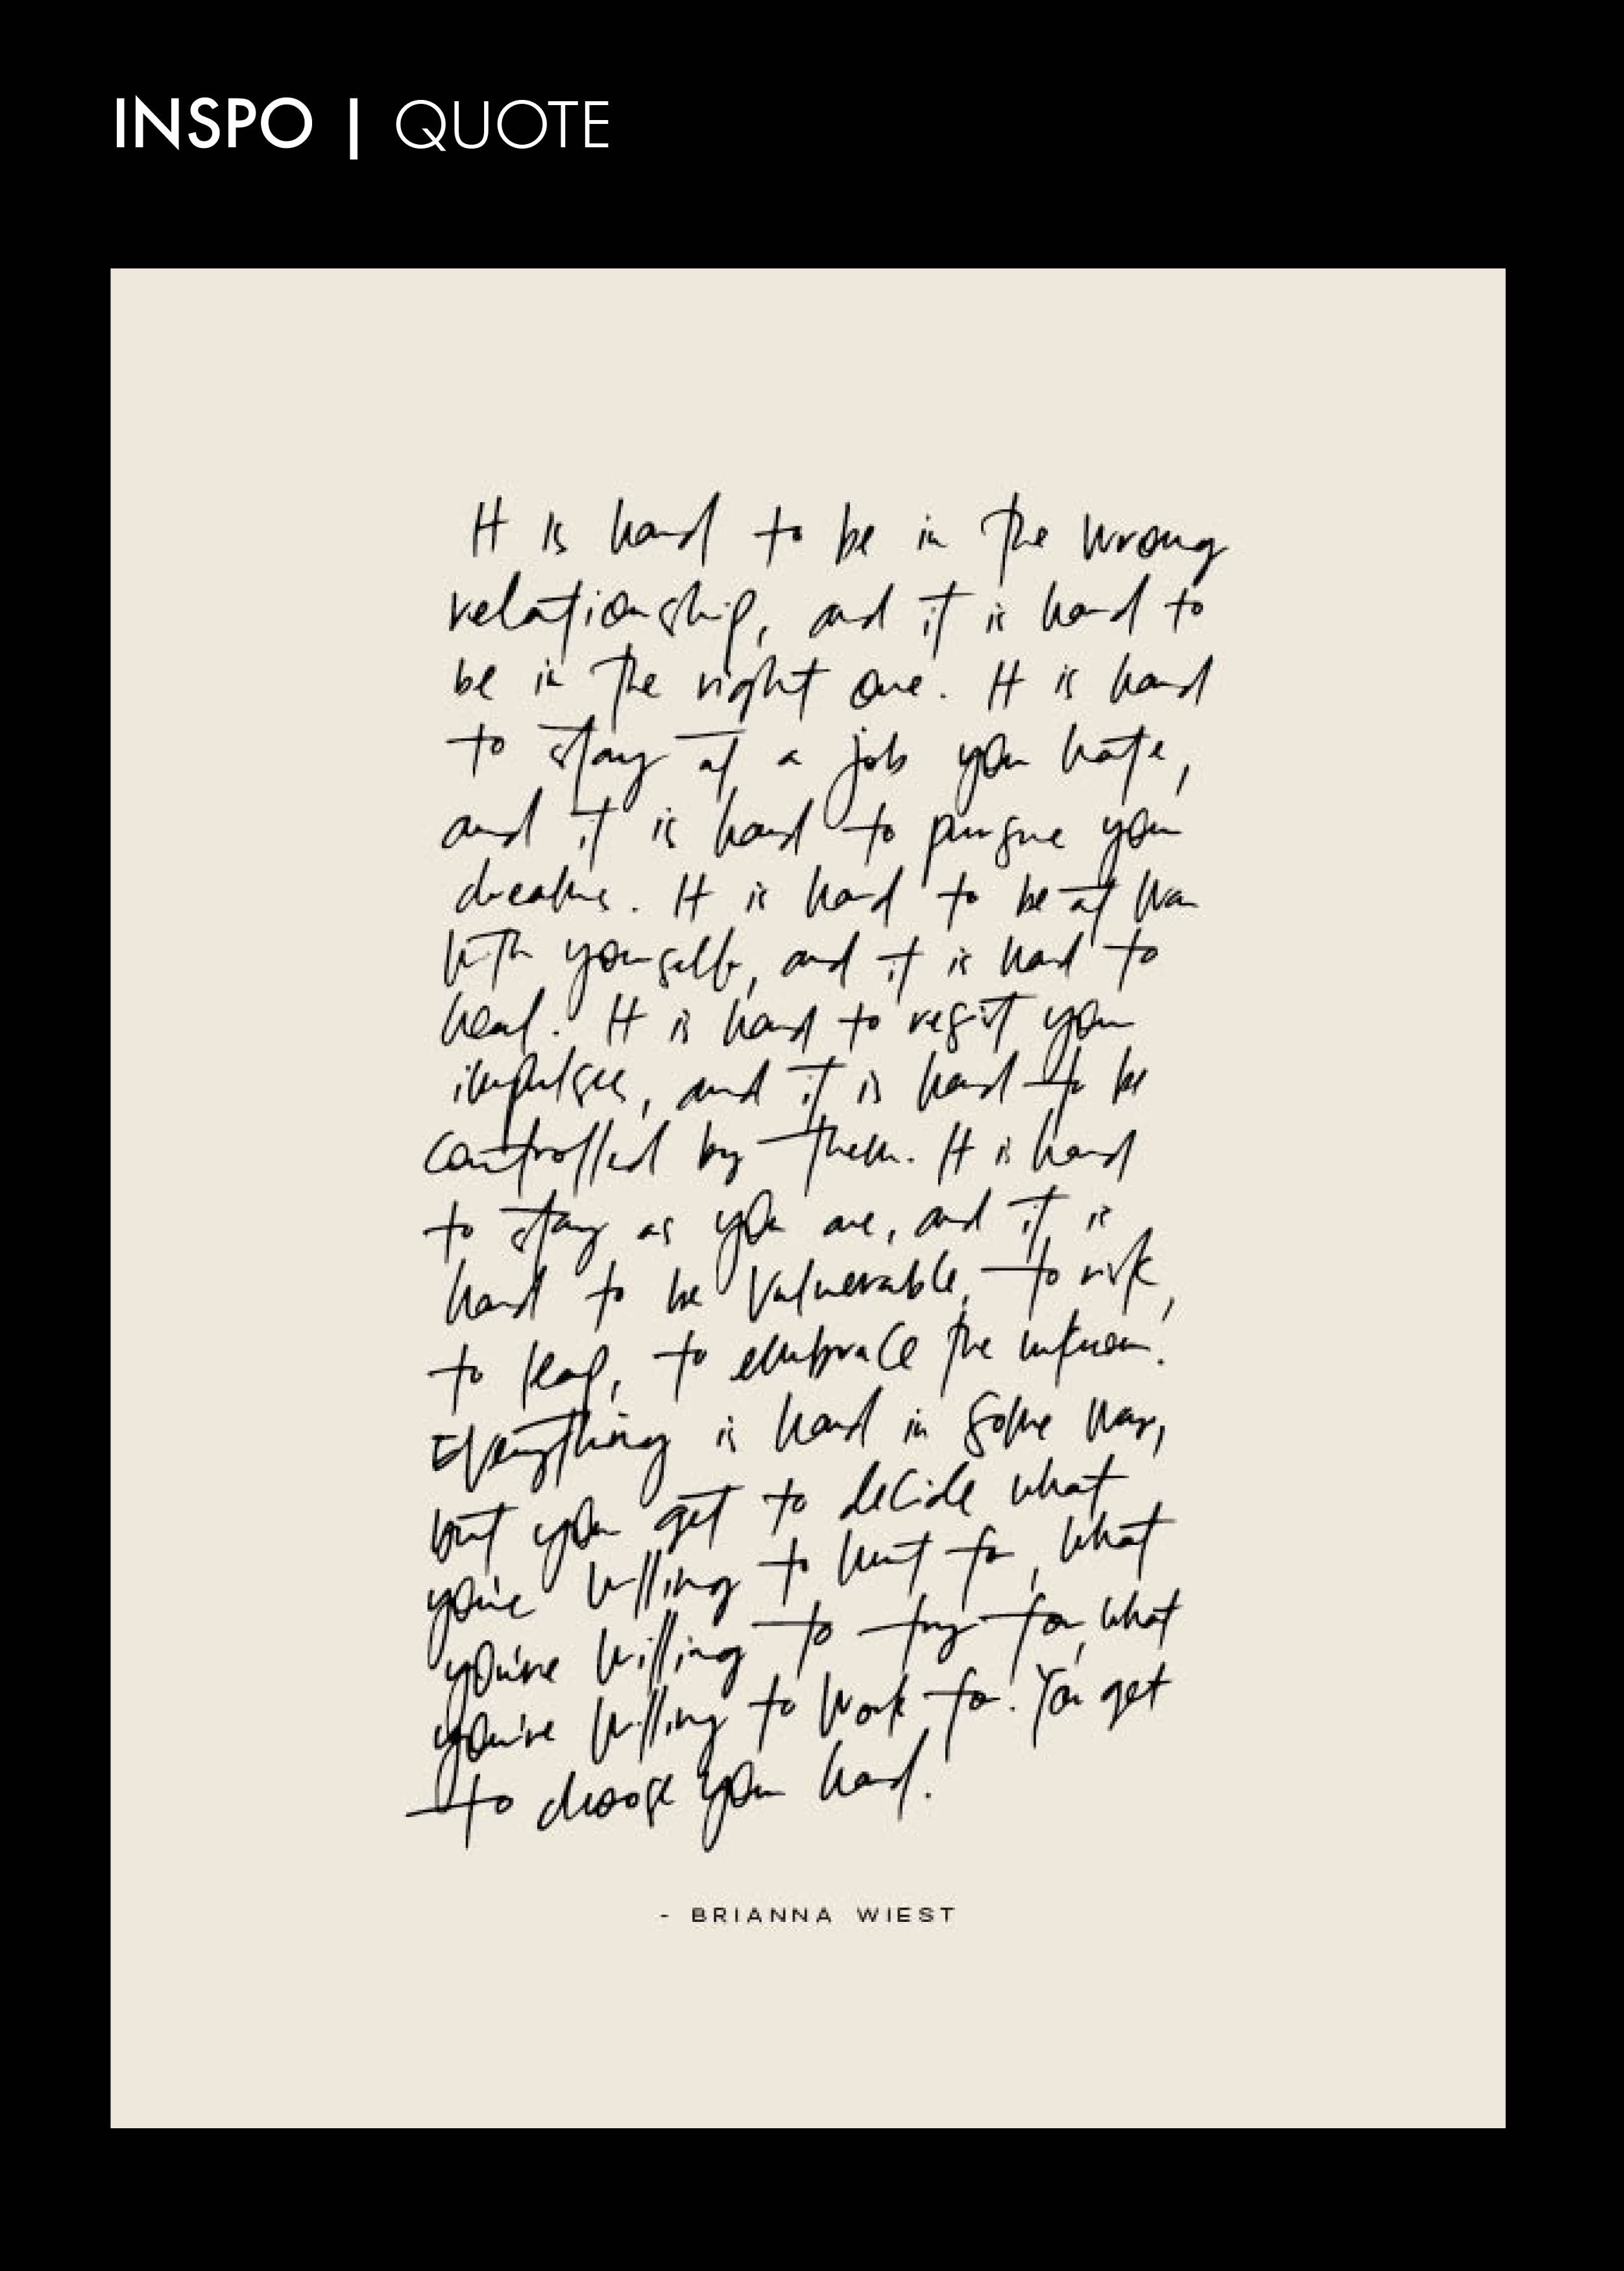 INSPO | QUOTE
It is hard to be in the wrong
relationship, and it is hard to
be in the right one. It is hard
to stay at a job you hate,
and it is hard to pursue your
dreams. It is hard to be at war
with yourself, and it is hard to
heal. It is hard to resist your
impulses, and it is hard to be
controlled by them. It is hard
to stay as you are, and it is
hard to be vulnerable, to risk,
to leap, to embrace the unknown.
Everything is hard in some way,
but you get to decide what
you're willing to hurt for, what
you're willing to try for, what
you're willing to work for. You get
to choose your hard.
- BRIANNA WIEST